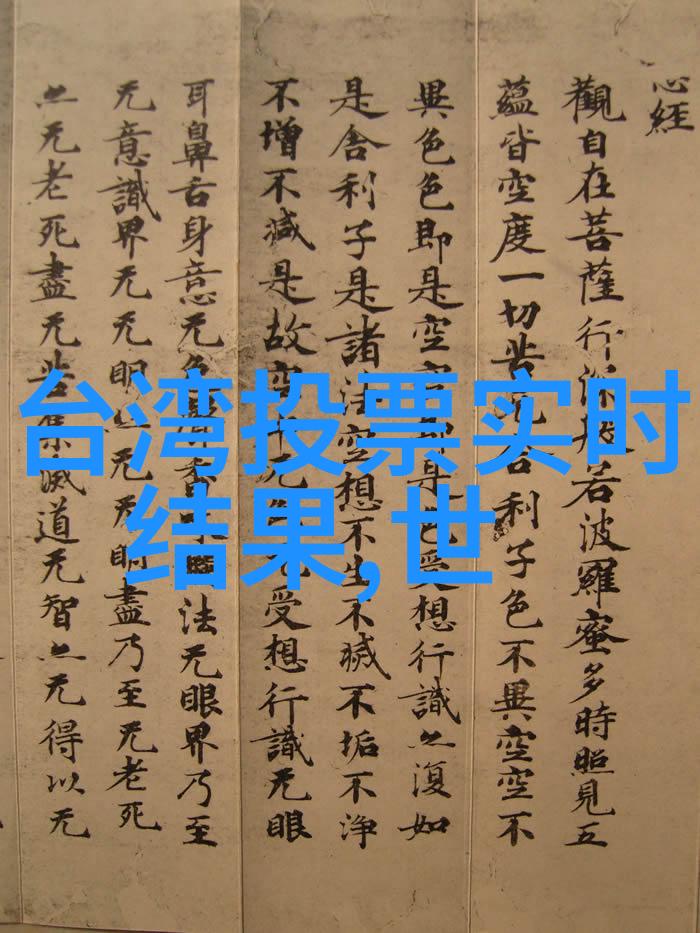 心經
觀自在菩薩行深般若波羅蜜多時照見五
蘊皆空度一切苦厄舍利子色不異空空不
異色色即是空空即是色受想行識亦復如
是舍利子是諸法空想不生不滅不垢不淨
不增不減是故空中无色无受想行識无眼
耳鼻舌身意无色聲香法无眼界乃至
无意識界无无明亦无无明盡乃至无老死
亦无老死盡无苦集滅道无智亦无得以无
台湾投票实时
结果,世